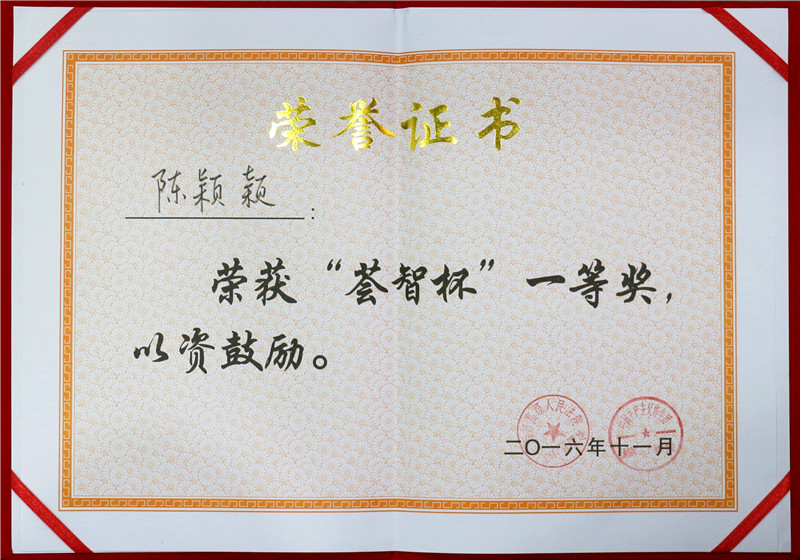 荣誉证书
陈颖颖：
荣获“荟智杯”一等奖，
以资鼓励。
人民法院
二〇一六年十一月